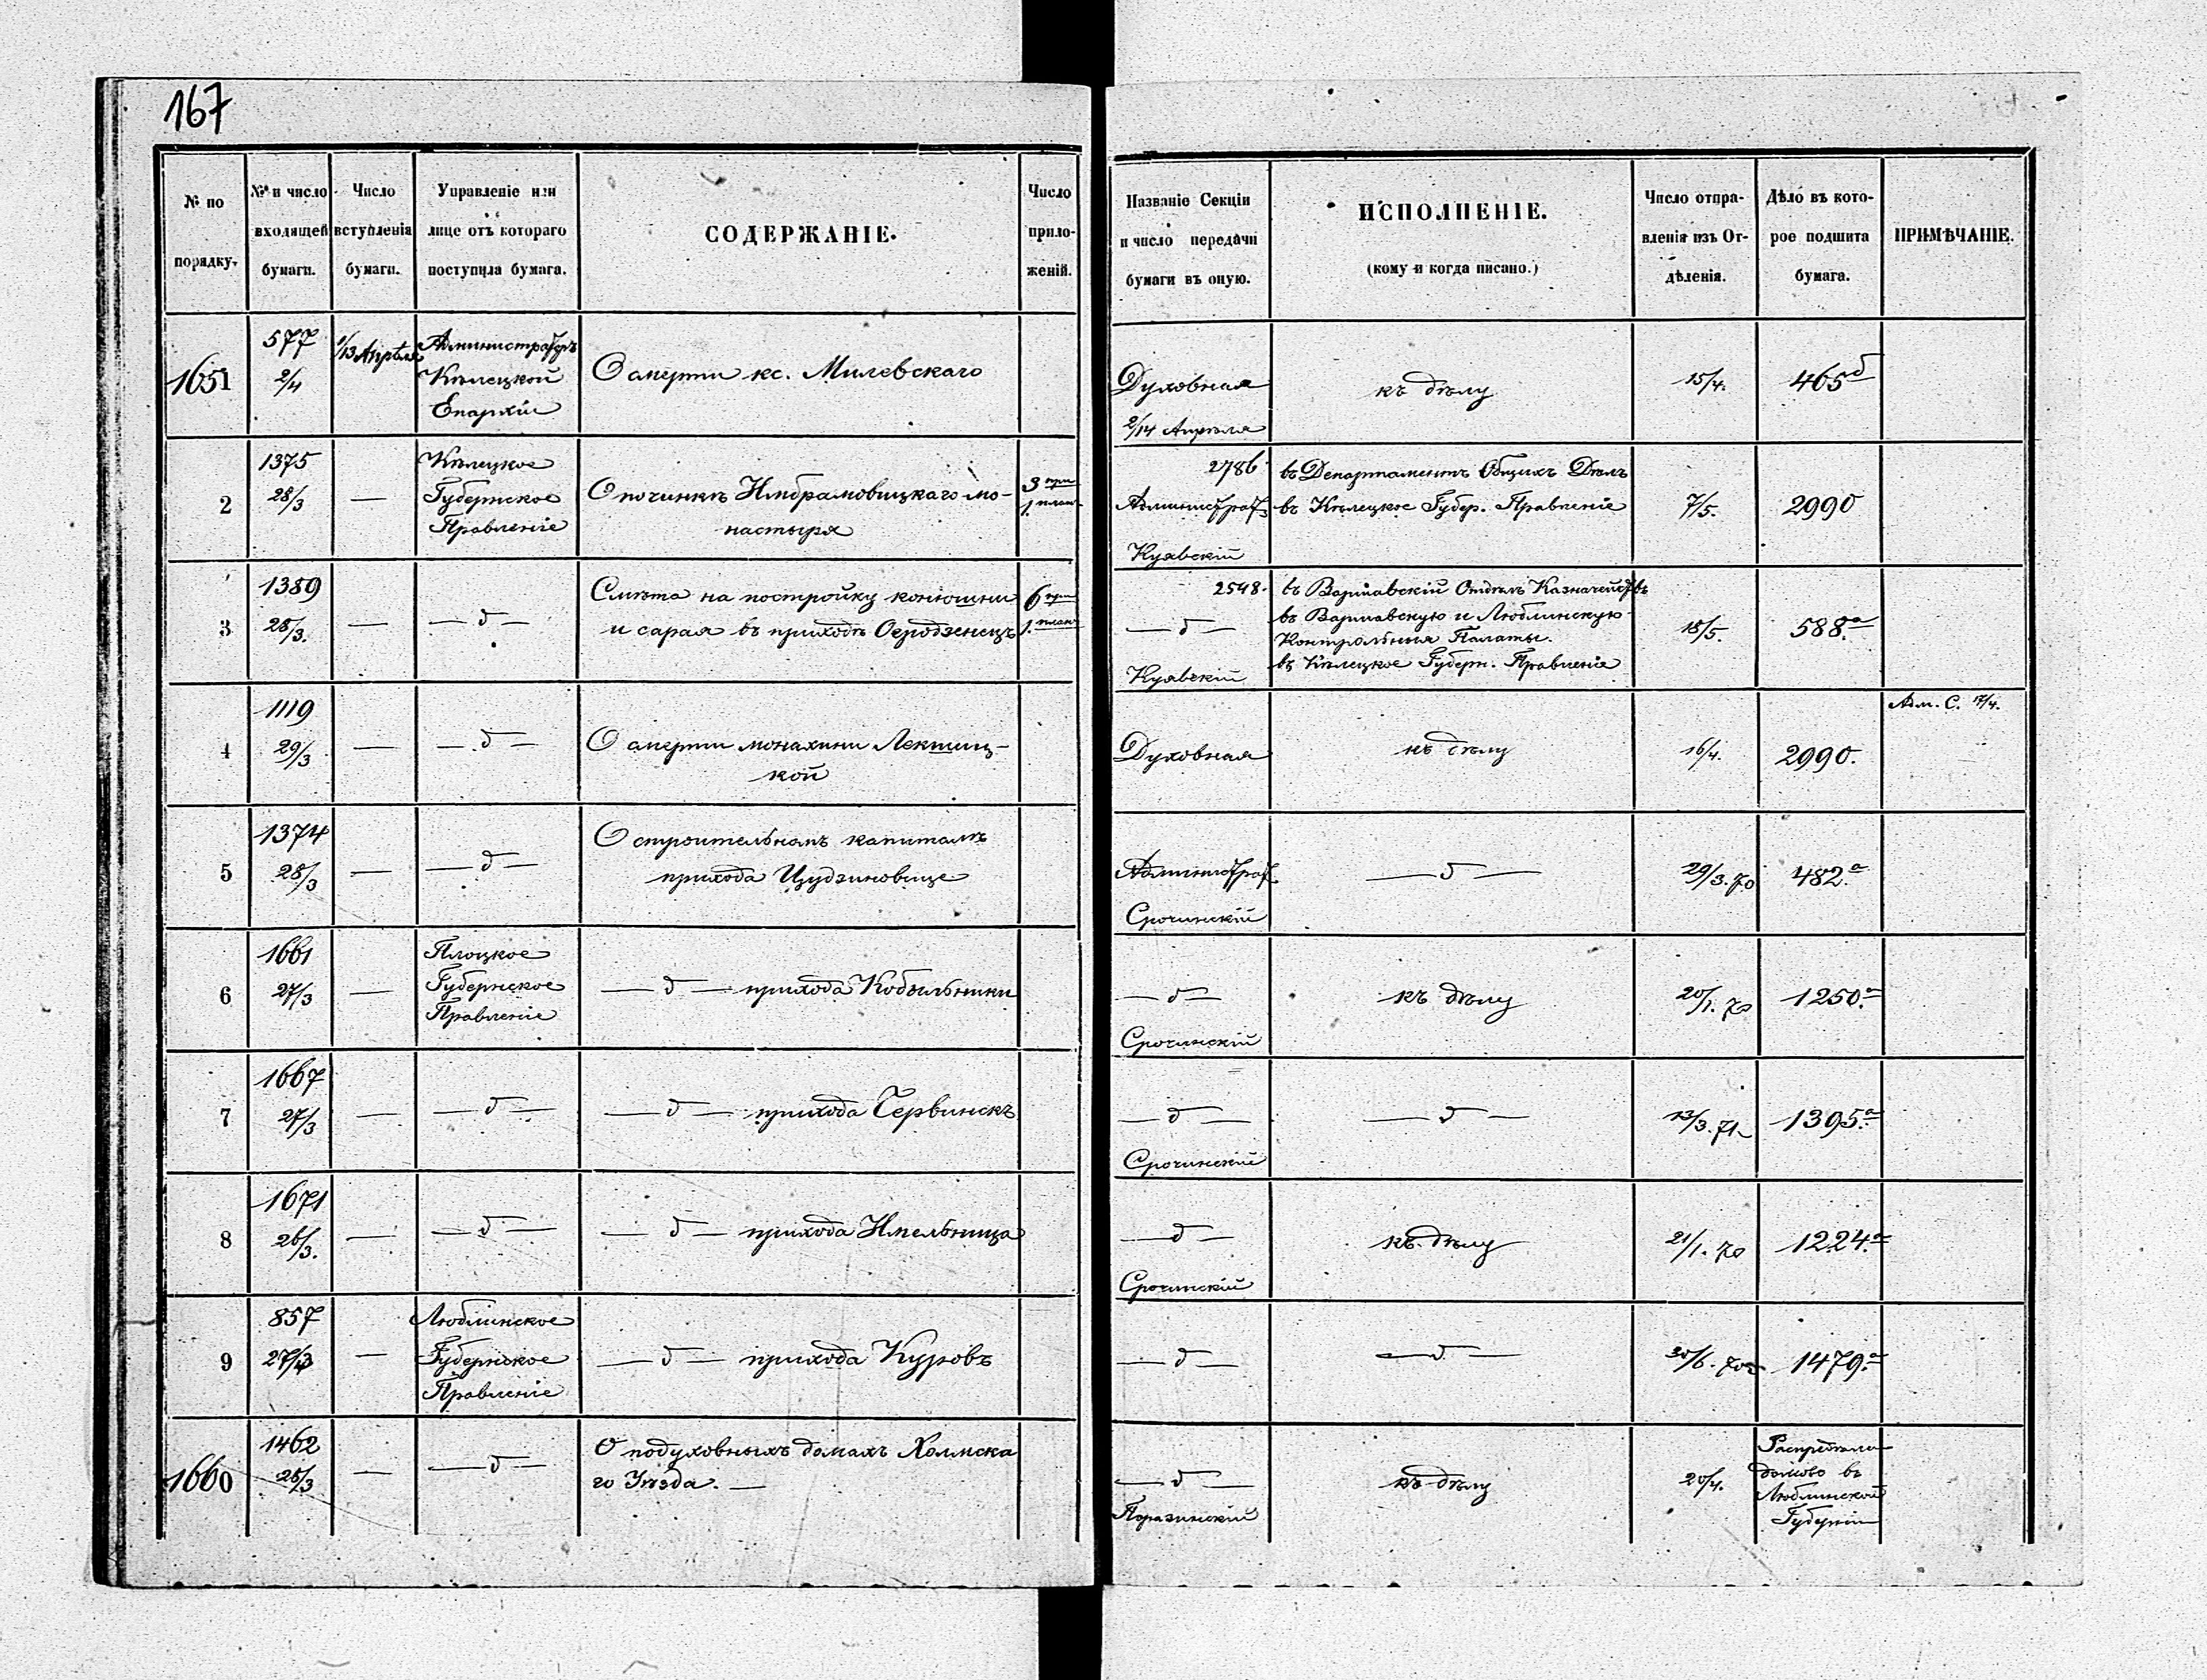 167
№ по порядку.
№ и число входящей бумаги.
Число вступленія бумаги.
Управленіе или лице отъ котораго поступила бумага.
СОДЕРЖАНІЕ.
Число приложеній.
Названіе Секціи и число передачи бумаги въ оную.
ИСПОЛНЕНІЕ.
(кому и когда писано.)
Число отправленія изъ Отдѣленія.
Дѣло въ которое подшита бумага.
ПРИМѢЧАНІЕ.
1651
577
2/4
1/13 Апрѣля
Администраторъ
Кѣлецкой
Епархіи
О смерти кс. Милевскаго
Духовная
2/14 Апрѣля
къ дѣлу
15/4.
465б
2
1375
28/3
—
Кѣлецкое
Губернское
Правленіе
О починкѣ Имбрамовицкаго мо-
настыря
3 при
1. план
2786
Администрат
Куявскій
въ Департаментъ Общихъ Дѣлъ
въ Кѣлецкое Губер. Правленіе
7/5.
2990
3
1389
28/3.
—
— д —
Смѣта на постройку конюшни
и сарая въ приходѣ Огродзенецъ
6 при
1. план
2548.
— д —
Куявскій
въ Варшавскій Отдѣлъ Казначействъ
въ Варшавскую и Люблинскую
Контрольныя Палаты.
въ Кѣлецкое Губерн. Правленіе
18/5.
588.а
4
1119
29/3
—
— д —
О смерти монахини Лектшиц-
кой
Духовная
къ дѣлу
16/4.
2990.
Адм. С. 17/4.
5
1374
28/3
—
— д —
О строительномъ капиталѣ
прихода Цудзиновице
Администрат
Срочинскій
— д —
29/3. 70
482.а
6
1661
27/3
—
Плоцкое
Губернское
Правленіе
— д — прихода Кобыльники
— д —
Срочинскій
къ дѣлу
20/1. 70
1250.а
7
1667
27/3
—
— д —
— д — прихода Червинскъ
— д —
Срочинскій
— д —
13/3. 71
1395.а
8
1671
26/3.
—
— д —
— д — прихода Имельница
— д —
Срочинскій
къ дѣлу
21/1. 70
1224.а
9
857
27/3
—
Люблинское
Губернское
Правленіе
— д — прихода Куровъ
— д —
— д —
30/6. 70
1479.а
1660
1462
28/3
—
— д —
О подуховныхъ домахъ Холмска
го Уѣзда. —
— д —
Поразинскій
къ дѣлу
20/4.
домово въ
Люблинской
Губерніи